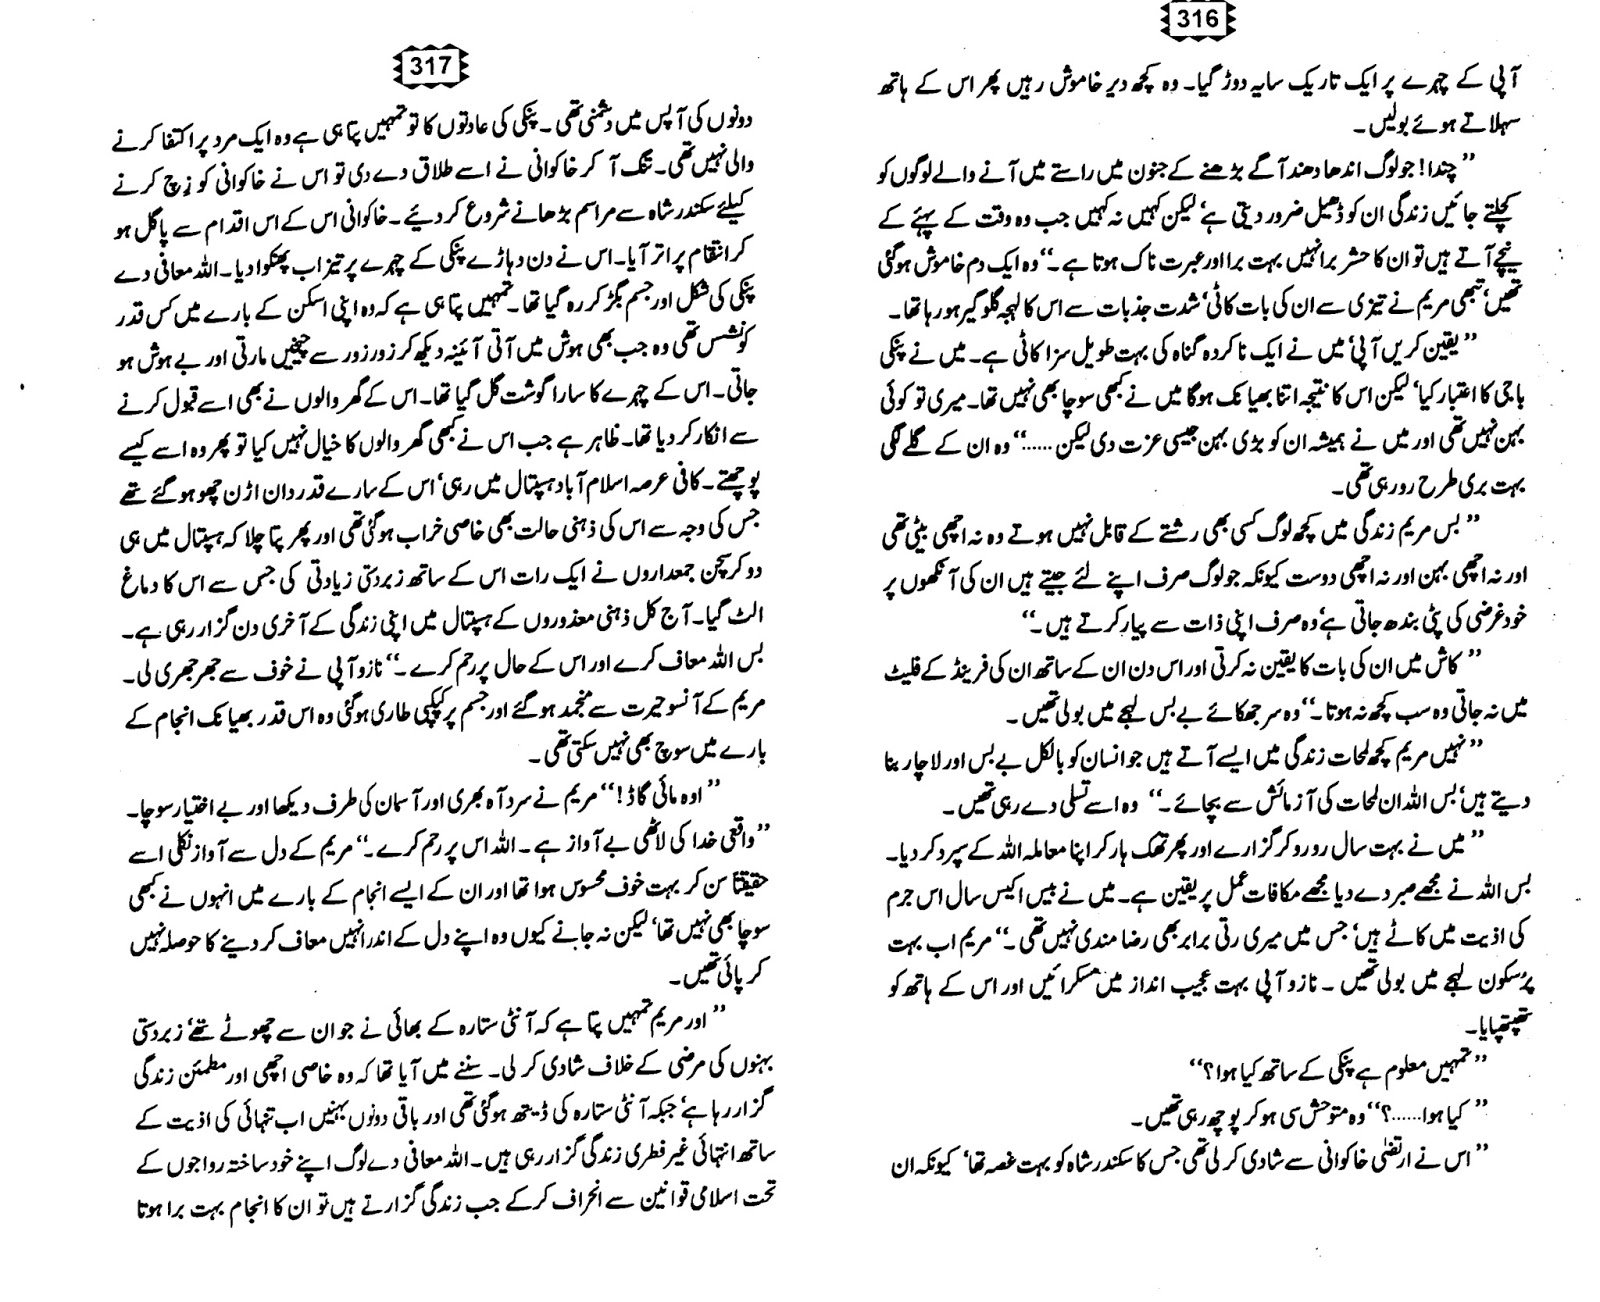 316
آپی کے چہرے پر ایک تاریک سایہ دوڑ گیا۔ وہ کچھ دیر خاموش رہیں پھر اس کے ہاتھ
سہلاتے ہوئے بولیں۔
”چندا! جو لوگ اندھا دھند آگے بڑھنے کے جنون میں راستے میں آنے والے لوگوں کو
کچلتے جائیں زندگی ان کو ڈھیل ضرور دیتی ہے‘ لیکن کہیں نہ کہیں جب وہ وقت کے پہئے کے
نیچے آتے ہیں تو ان کا حشر برا نہیں بہت برا اور عبرت ناک ہوتا ہے۔“ وہ ایک دم خاموش ہو گئی
تھیں‘ تبھی مریم نے تیزی سے ان کی بات کاٹی‘ شدت جذبات سے اس کا لہجہ گلوگیر ہو رہا تھا۔
”یقین کریں آپی‘ میں نے ایک ناکردہ گناہ کی بہت طویل سزا کاٹی ہے۔ میں نے پنکی
باجی کا اعتبار کیا‘ لیکن اس کا نتیجہ اتنا بھیانک ہوگا میں نے کبھی سوچا بھی نہیں تھا۔ میری تو کوئی
بہن نہیں تھی اور میں نے ہمیشہ ان کو بڑی بہن جیسی عزت دی لیکن ......“ وہ ان کے گلے لگی
بہت بری طرح رو رہی تھی۔
”بس مریم زندگی میں کچھ لوگ کسی بھی رشتے کے قابل نہیں ہوتے وہ نہ اچھی بیٹی تھی
اور نہ اچھی بہن اور نہ اچھی دوست کیونکہ جو لوگ صرف اپنے لئے جیتے ہیں ان کی آنکھوں پر
خود غرضی کی پٹی بندھ جاتی ہے‘ وہ صرف اپنی ذات سے پیار کرتے ہیں۔“
”کاش میں ان کی بات کا یقین نہ کرتی اور اس دن ان کے ساتھ ان کی فرینڈ کے فلیٹ
میں نہ جاتی وہ سب کچھ نہ ہوتا۔“ وہ سر جھکائے بے بس لہجے میں بولی تھیں۔
”نہیں مریم کچھ لمحات زندگی میں ایسے آتے ہیں جو انسان کو بالکل بے بس اور لاچار بنا
دیتے ہیں‘ بس اللہ ان لمحات کی آزمائش سے بچائے۔“ وہ اسے تسلی دے رہی تھیں۔
”میں نے بہت سال رو رو کر گزارے اور پھر تھک ہار کر اپنا معاملہ اللہ کے سپرد کر دیا۔
بس اللہ نے مجھے صبر دے دیا مجھے مکافات عمل پر یقین ہے۔ میں نے بیس اکیس سال اس جرم
کی اذیت میں کاٹے ہیں‘ جس میں میری رتی برابر بھی رضامندی نہیں تھی۔“ مریم اب بہت
پرُسکون لہجے میں بولی تھیں۔ نازو آپی بہت عجیب انداز میں مسکرائیں اور اس کے ہاتھ کو
تھپتھپایا۔
”تمہیں معلوم ہے پنکی کے ساتھ کیا ہوا؟“
”کیا ہوا......؟“ وہ متوحش سی ہو کر پوچھ رہی تھیں۔
”اس نے ارتضیٰ خاکوانی سے شادی کر لی تھی جس کا سکندر شاہ کو بہت غصہ تھا‘ کیونکہ ان
317
دونوں کی آپس میں دشمنی تھی۔ پنکی کی عادتوں کا تو تمہیں پتا ہی ہے وہ ایک مرد پر اکتفا کرنے
والی نہیں تھی۔ تنگ آ کر خاکوانی نے اسے طلاق دے دی تو اس نے خاکوانی کو زچ کرنے
کیلئے سکندر شاہ سے مراسم بڑھانے شروع کر دئیے۔ خاکوانی اس کے اس اقدام سے پاگل ہو
کر انتقام پر اتر آیا۔ اس نے دن دہاڑے پنکی کے چہرے پر تیزاب پھنکوا دیا۔ اللہ معافی دے
پنکی کی شکل اور جسم بگڑ کر رہ گیا تھا۔ تمہیں پتا ہی ہے کہ وہ اپنی اسکن کے بارے میں کس قدر
کونشس تھی وہ جب بھی ہوش میں آتی آئینہ دیکھ کر زور زور سے چیخیں مارتی اور بے ہوش ہو
جاتی۔ اس کے چہرے کا سارا گوشت گل گیا تھا۔ اس کے گھر والوں نے بھی اسے قبول کرنے
سے انکار کر دیا تھا۔ ظاہر ہے جب اس نے کبھی گھر والوں کا خیال نہیں کیا تو پھر وہ اسے کیسے
پوچھتے۔ کافی عرصہ اسلام آباد ہسپتال میں رہی‘ اس کے سارے قدردان اڑن چھو ہو گئے تھے
جس کی وجہ سے اس کی ذہنی حالت بھی خاصی خراب ہو گئی تھی اور پھر پتا چلا کہ ہسپتال میں ہی
دو کرسچن جمعداروں نے ایک رات اس کے ساتھ زبردستی زیادتی کی جس سے اس کا دماغ
الٹ گیا۔ آج کل ذہنی معذوروں کے ہسپتال میں اپنی زندگی کے آخری دن گزار رہی ہے۔
بس اللہ معاف کرے اور اس کے حال پر رحم کرے۔“ نازو آپی نے خوف سے جھرجھری لی۔
مریم کے آنسو حیرت سے منجمد ہو گئے اور جسم پر کپکپی طاری ہو گئی وہ اس قدر بھیانک انجام کے
بارے میں سوچ بھی نہیں سکتی تھی۔
”اوہ مائی گاڈ!“ مریم نے سرد آہ بھری اور آسمان کی طرف دیکھا اور بے اختیار سوچا۔
”واقعی خدا کی لاٹھی بے آواز ہے۔ اللہ اس پر رحم کرے۔“ مریم کے دل سے آواز نکلی اسے
حقیقتاً سن کر بہت خوف محسوس ہوا تھا اور ان کے ایسے انجام کے بارے میں انہوں نے کبھی
سوچا بھی نہیں تھا‘ لیکن نہ جانے کیوں وہ اپنے دل کے اندر انہیں معاف کر دینے کا حوصلہ نہیں
کر پائی تھیں۔
”اور مریم تمہیں پتا ہے کہ آنٹی ستارہ کے بھائی نے جو ان سے چھوٹے تھے‘ زبردستی
بہنوں کی مرضی کے خلاف شادی کر لی۔ سننے میں آیا تھا کہ وہ خاصی اچھی اور مطمئن زندگی
گزار رہا ہے‘ جبکہ آنٹی ستارہ کی ڈیتھ ہو گئی تھی اور باقی دونوں بہنیں اب تنہائی کی اذیت کے
ساتھ انتہائی غیر فطری زندگی گزار رہی ہیں۔ اللہ معافی دے لوگ اپنے خود ساختہ رواجوں کے
تحت اسلامی قوانین سے انحراف کر کے جب زندگی گزارتے ہیں تو ان کا انجام بہت برا ہوتا